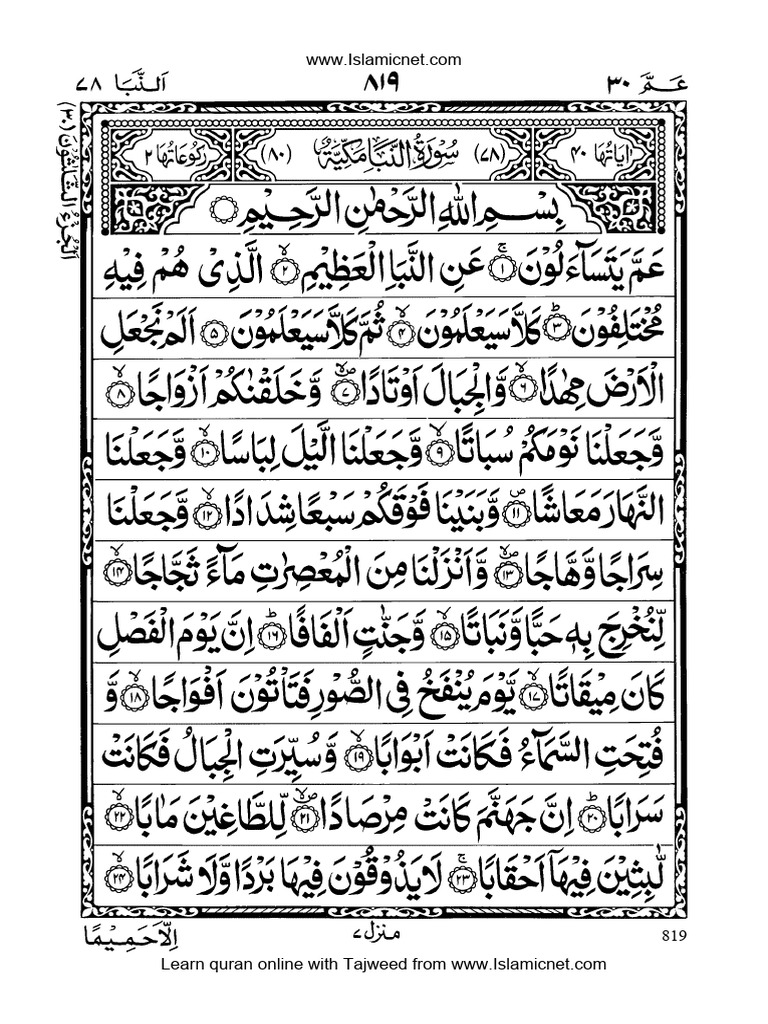 www.Islamicnet.com
عَـمَّ ٣٠ ٨١٩ اَلنَّبَا ٧٨
اَلْجُزْءُ الثَّلٰثُوْنَ (٣٠)
اٰيَاتُهَا ٤٠ (٧٨) سُوْرَةُ النَّبَاِ مَكِّيَّةٌ (٨٠) رُكُوْعَاتُهَا ٢
بِسْمِ اللّٰهِ الرَّحْمٰنِ الرَّحِيْمِ ۝
عَمَّ يَتَسَآءَلُوْنَ ۚ‏﴿١﴾ عَنِ النَّبَاِ الْعَظِيْمِ ۙ‏﴿٢﴾ الَّذِىْ هُمْ فِيْهِ
مُخْتَلِفُوْنَ ؕ‏﴿٣﴾ كَلَّا سَيَعْلَمُوْنَ ۙ‏﴿٤﴾ ثُمَّ كَلَّا سَيَعْلَمُوْنَ ﴿٥﴾ اَلَمْ نَجْعَلِ
الْاَرْضَ مِهٰدًا ۙ‏﴿٦﴾ وَّالْجِبَالَ اَوْتَادًا ۪ۙ‏﴿٧﴾ وَّخَلَقْنٰكُمْ اَزْوَاجًا ۙ‏﴿٨﴾
وَّجَعَلْنَا نَوْمَكُمْ سُبَاتًا ۙ‏﴿٩﴾ وَّجَعَلْنَا الَّيْلَ لِبَاسًا ۙ‏﴿١٠﴾ وَّجَعَلْنَا
النَّهَارَ مَعَاشًا ۪‏﴿١١﴾ وَّبَنَيْنَا فَوْقَكُمْ سَبْعًا شِدَادًا ۙ‏﴿١٢﴾ وَّجَعَلْنَا
سِرَاجًا وَّهَّاجًا ۪ۙ‏﴿١٣﴾ وَّاَنْزَلْنَا مِنَ الْمُعْصِرٰتِ مَآءً ثَجَّاجًا ۙ‏﴿١٤﴾
لِّنُخْرِجَ بِهٖ حَبًّا وَّنَبَاتًا ۙ‏﴿١٥﴾ وَّجَنّٰتٍ اَلْفَافًا ؕ‏﴿١٦﴾ اِنَّ يَوْمَ الْفَصْلِ
كَانَ مِيْقَاتًا ۙ‏﴿١٧﴾ يَّوْمَ يُنْفَخُ فِى الصُّوْرِ فَتَاْتُوْنَ اَفْوَاجًا ۙ‏﴿١٨﴾ وَّ
فُتِحَتِ السَّمَآءُ فَكَانَتْ اَبْوَابًا ۙ‏﴿١٩﴾ وَّسُيِّرَتِ الْجِبَالُ فَكَانَتْ
سَرَابًا ؕ‏﴿٢٠﴾ اِنَّ جَهَنَّمَ كَانَتْ مِرْصَادًا ۪ۙ‏﴿٢١﴾ لِّلطَّاغِيْنَ مَاٰبًا ۙ‏﴿٢٢﴾
لّٰبِثِيْنَ فِيْهَاۤ اَحْقَابًا ۚ‏﴿٢٣﴾ لَا يَذُوْقُوْنَ فِيْهَا بَرْدًا وَّلَا شَرَابًا ۙ‏﴿٢٤﴾
819 منزل ٧ اِلَّا حَمِيْمًا
Learn quran online with Tajweed from www.Islamicnet.com